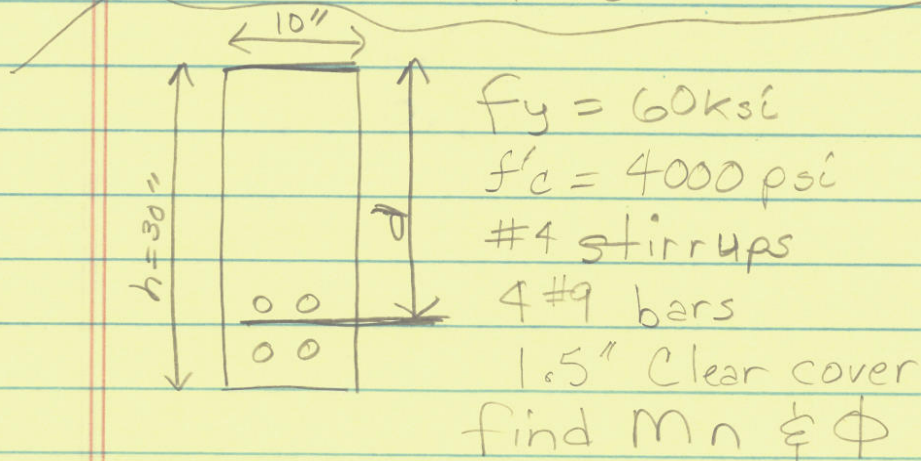 10"
h=30"
d
fy = 60ksi
f'c = 4000 psi
#4 stirrups
4 #9 bars
1.5" Clear cover
find Mn & Φ